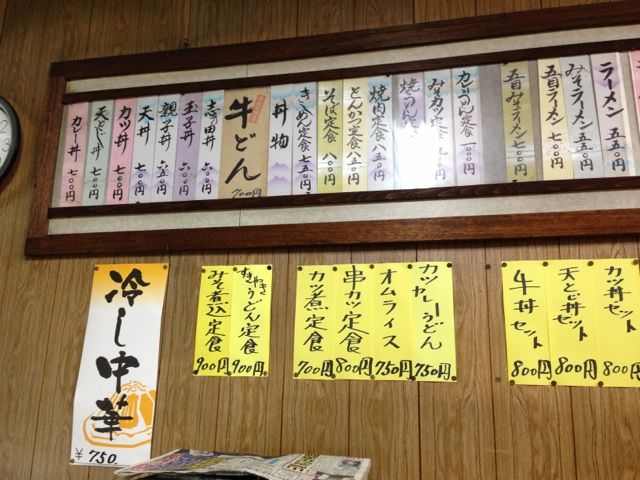 ラーメン 五五〇円
みそラーメン 五五〇円
五目ラーメン 七〇〇円
五目みそラーメン 七〇〇円
みそカツ定食
焼肉定食 八五〇円
とんかつ定食 八五〇円
そば定食 八〇〇円
きしめん定食 七五〇円
丼物
牛どん 700円
志の田丼
玉子丼 六〇〇円
親子丼 六五〇円
天丼 七〇〇円
カツ丼 七〇〇円
天とじ丼 七〇〇円
カレー丼 七〇〇円
カツ丼セット 800円
天とじ丼セット 800円
牛丼セット 800円
カツカレーうどん 750円
オムライス 750円
串カツ定食 800円
カツ煮定食 700円
すきやきうどん定食 900円
みそ煮込定食 900円
冷し中華
¥750